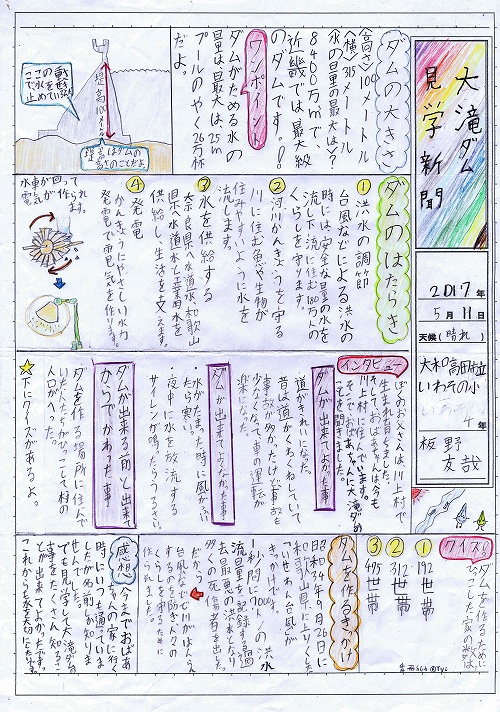 大滝ダム
見学新聞
2017年
5月11日
天候(晴れ)
大和高田市立
いわその小
年
板野
友哉
ダムの大きさ
〈高さ〉100メートル
〈横〉315メートル
水の量の最大は?
8400万m³で、
近畿では最大級
のダムです!!
ワンポイント
ダムがためる水の
量は最大は、25m
プールのやく26万杯
だよ。
堤高100メートル
ダムのはたらき
① 洪水の調節
台風などによる洪水の
時には、安全な量の水を
流し下流に住む
くらしを守ります。
② 河川かんきょうを守る
川に住む魚や生物が
住みやすいように水を
流します。
③ 水を供給する
奈良県へ水道水、和歌山
県へ水道水と工業用水を
供給し、生活を支えます。
④ 発電
かんきょうにやさしい水力
発電で電気を作ります。
水車が回って
電気が作られ
ます。
インタビュー
ぼくのお父さんは川上村で
生まれ育ちました。
そしておばあちゃんは今も
川上村に住んでいます。
そこでおばあちゃんに大滝ダムの
ことを聞きました。
ダムが出来てよかった事
道がきれいになった。
昔は道がくねくねしていて
事故が多かったけど事故も
少なくなって車の運転が
楽になった。
ダムが出来てよくなかった事
・水がたまった時に風がふい
たら寒い。
・夜中に水を放流する
サイレンが鳴ったらうるさい。
ダムが出来る前と出来て
からでかわった事
ダムを作る場所に住んで
いた人たちがひっこして村の
人口がへった。
☆下にクイズがあるよ。
クイズ
ダムを作るために
ひっこした家の数は、
① 192世帯
② 312世帯
③ 495世帯
ダムを作るきっかけ
昭和34年9月26日に
和歌山県に上りくした
「いせわん台風」が
きっかけです。
1秒間に7000トンの洪水
流量を記録する過
去最悪の洪水となり
多くの死傷者を出した。
だから
台風などで川がはんらん
するのを防ぎ人々の
くらしを守るために
作られました。
感想
今までおばあ
ちゃんの家に行く
時にいつも通っていま
したがあまり知りま
せんでした。
でも見学して大滝ダムの
事をたくさん知るこ
とが出来てよかったです。
これからも水を大切にしたいです。